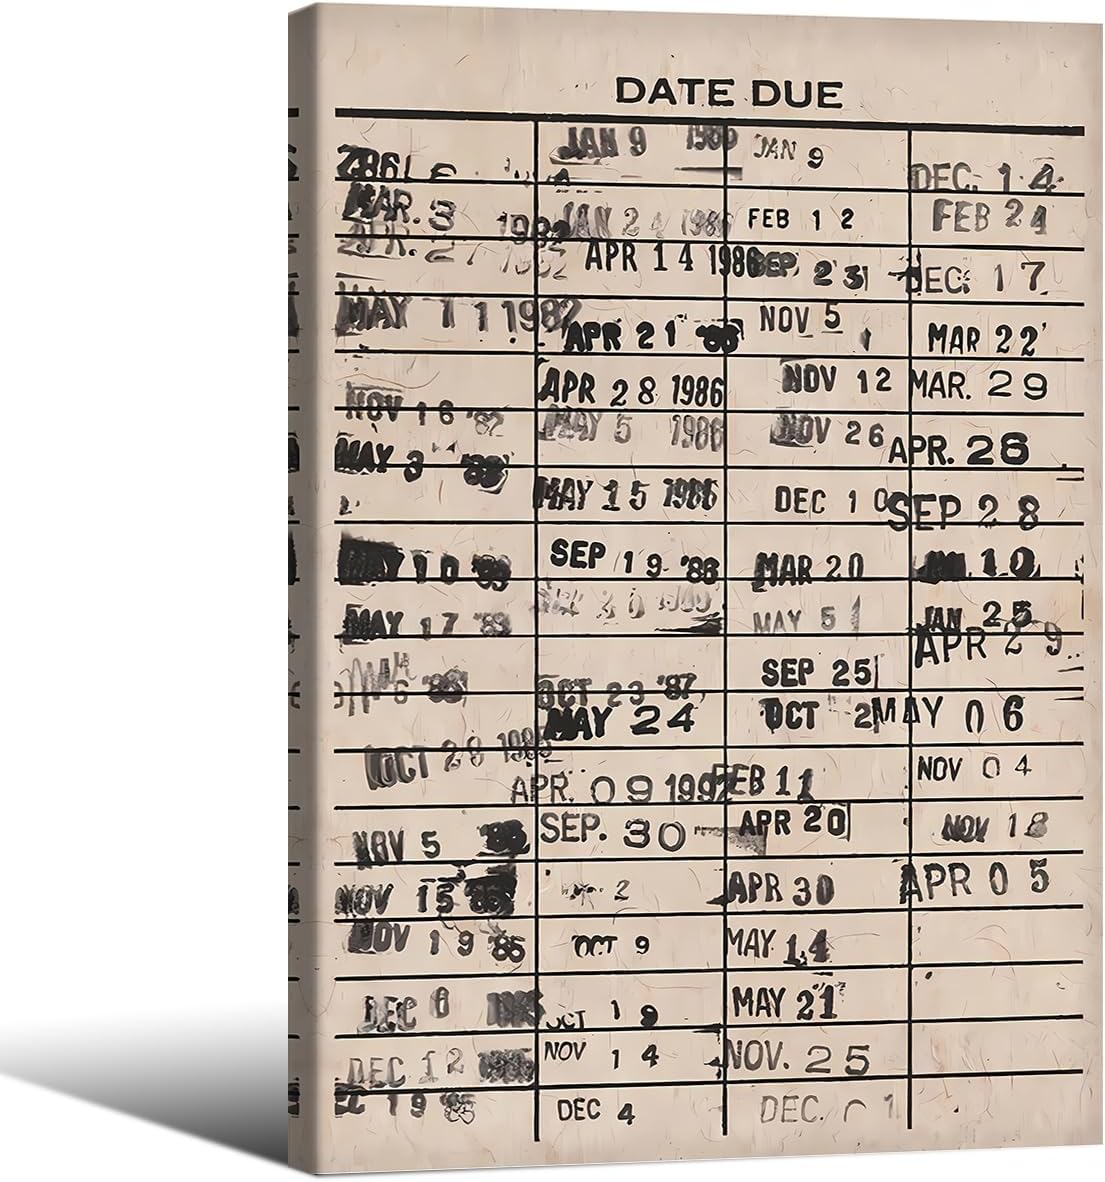 DATE DUE
MAR. 3 1982
MAY 11 1982
NOV 16 '82
MAY 3 '83
MAY 10 '83
MAY 17 '83
OCT 28 198
NOV 5
NOV 15 '85
NOV 19 '85
DEC 6
DEC 12
19 '85
JAN 9 1986
JAN 24 1986
APR 14 1986
APR 21 '86
APR 28 1986
MAY 5 1986
MAY 15 1986
SEP 19 '86
OCT 23 '87
MAY 24
APR. 09 1992
SEP. 30
2
OCT 9
OCT 19
NOV 14
DEC 4
JAN 9
FEB 12
SEP 23
NOV 5
NOV 12
NOV 26
DEC 10
MAR 20
MAY 5
SEP 25
OCT 2
FEB 11
APR 20
APR 30
MAY 14
MAY 21
NOV. 25
DEC.
DEC. 14
FEB 24
DEC. 17
MAR 22
MAR. 29
APR. 28
SEP 28
10
JAN 25
APR 29
MAY 06
NOV 04
NOV 18
APR 05